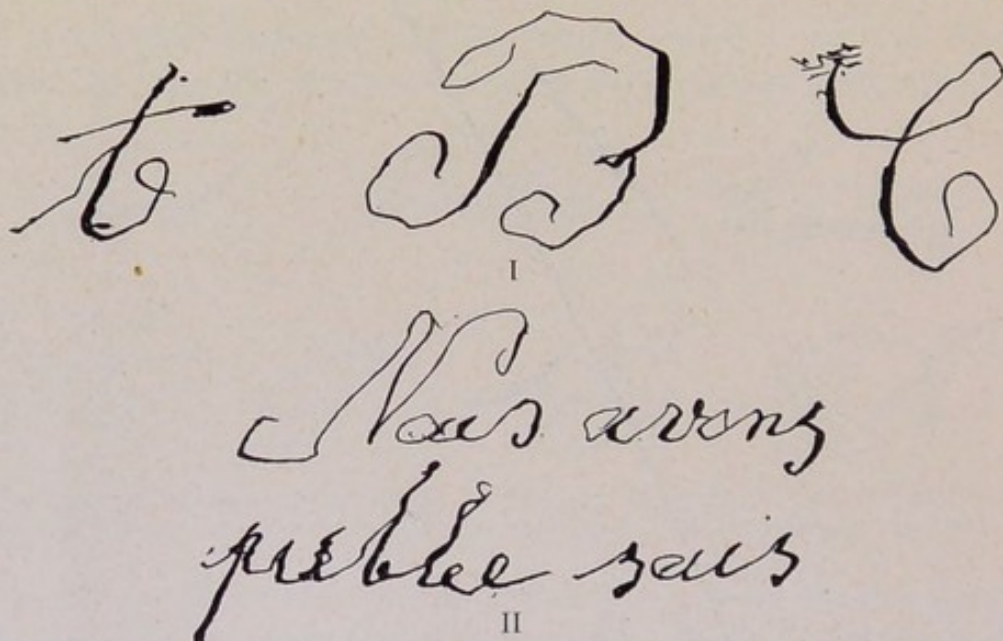 t B C
I
Nous avons
publée sais
II